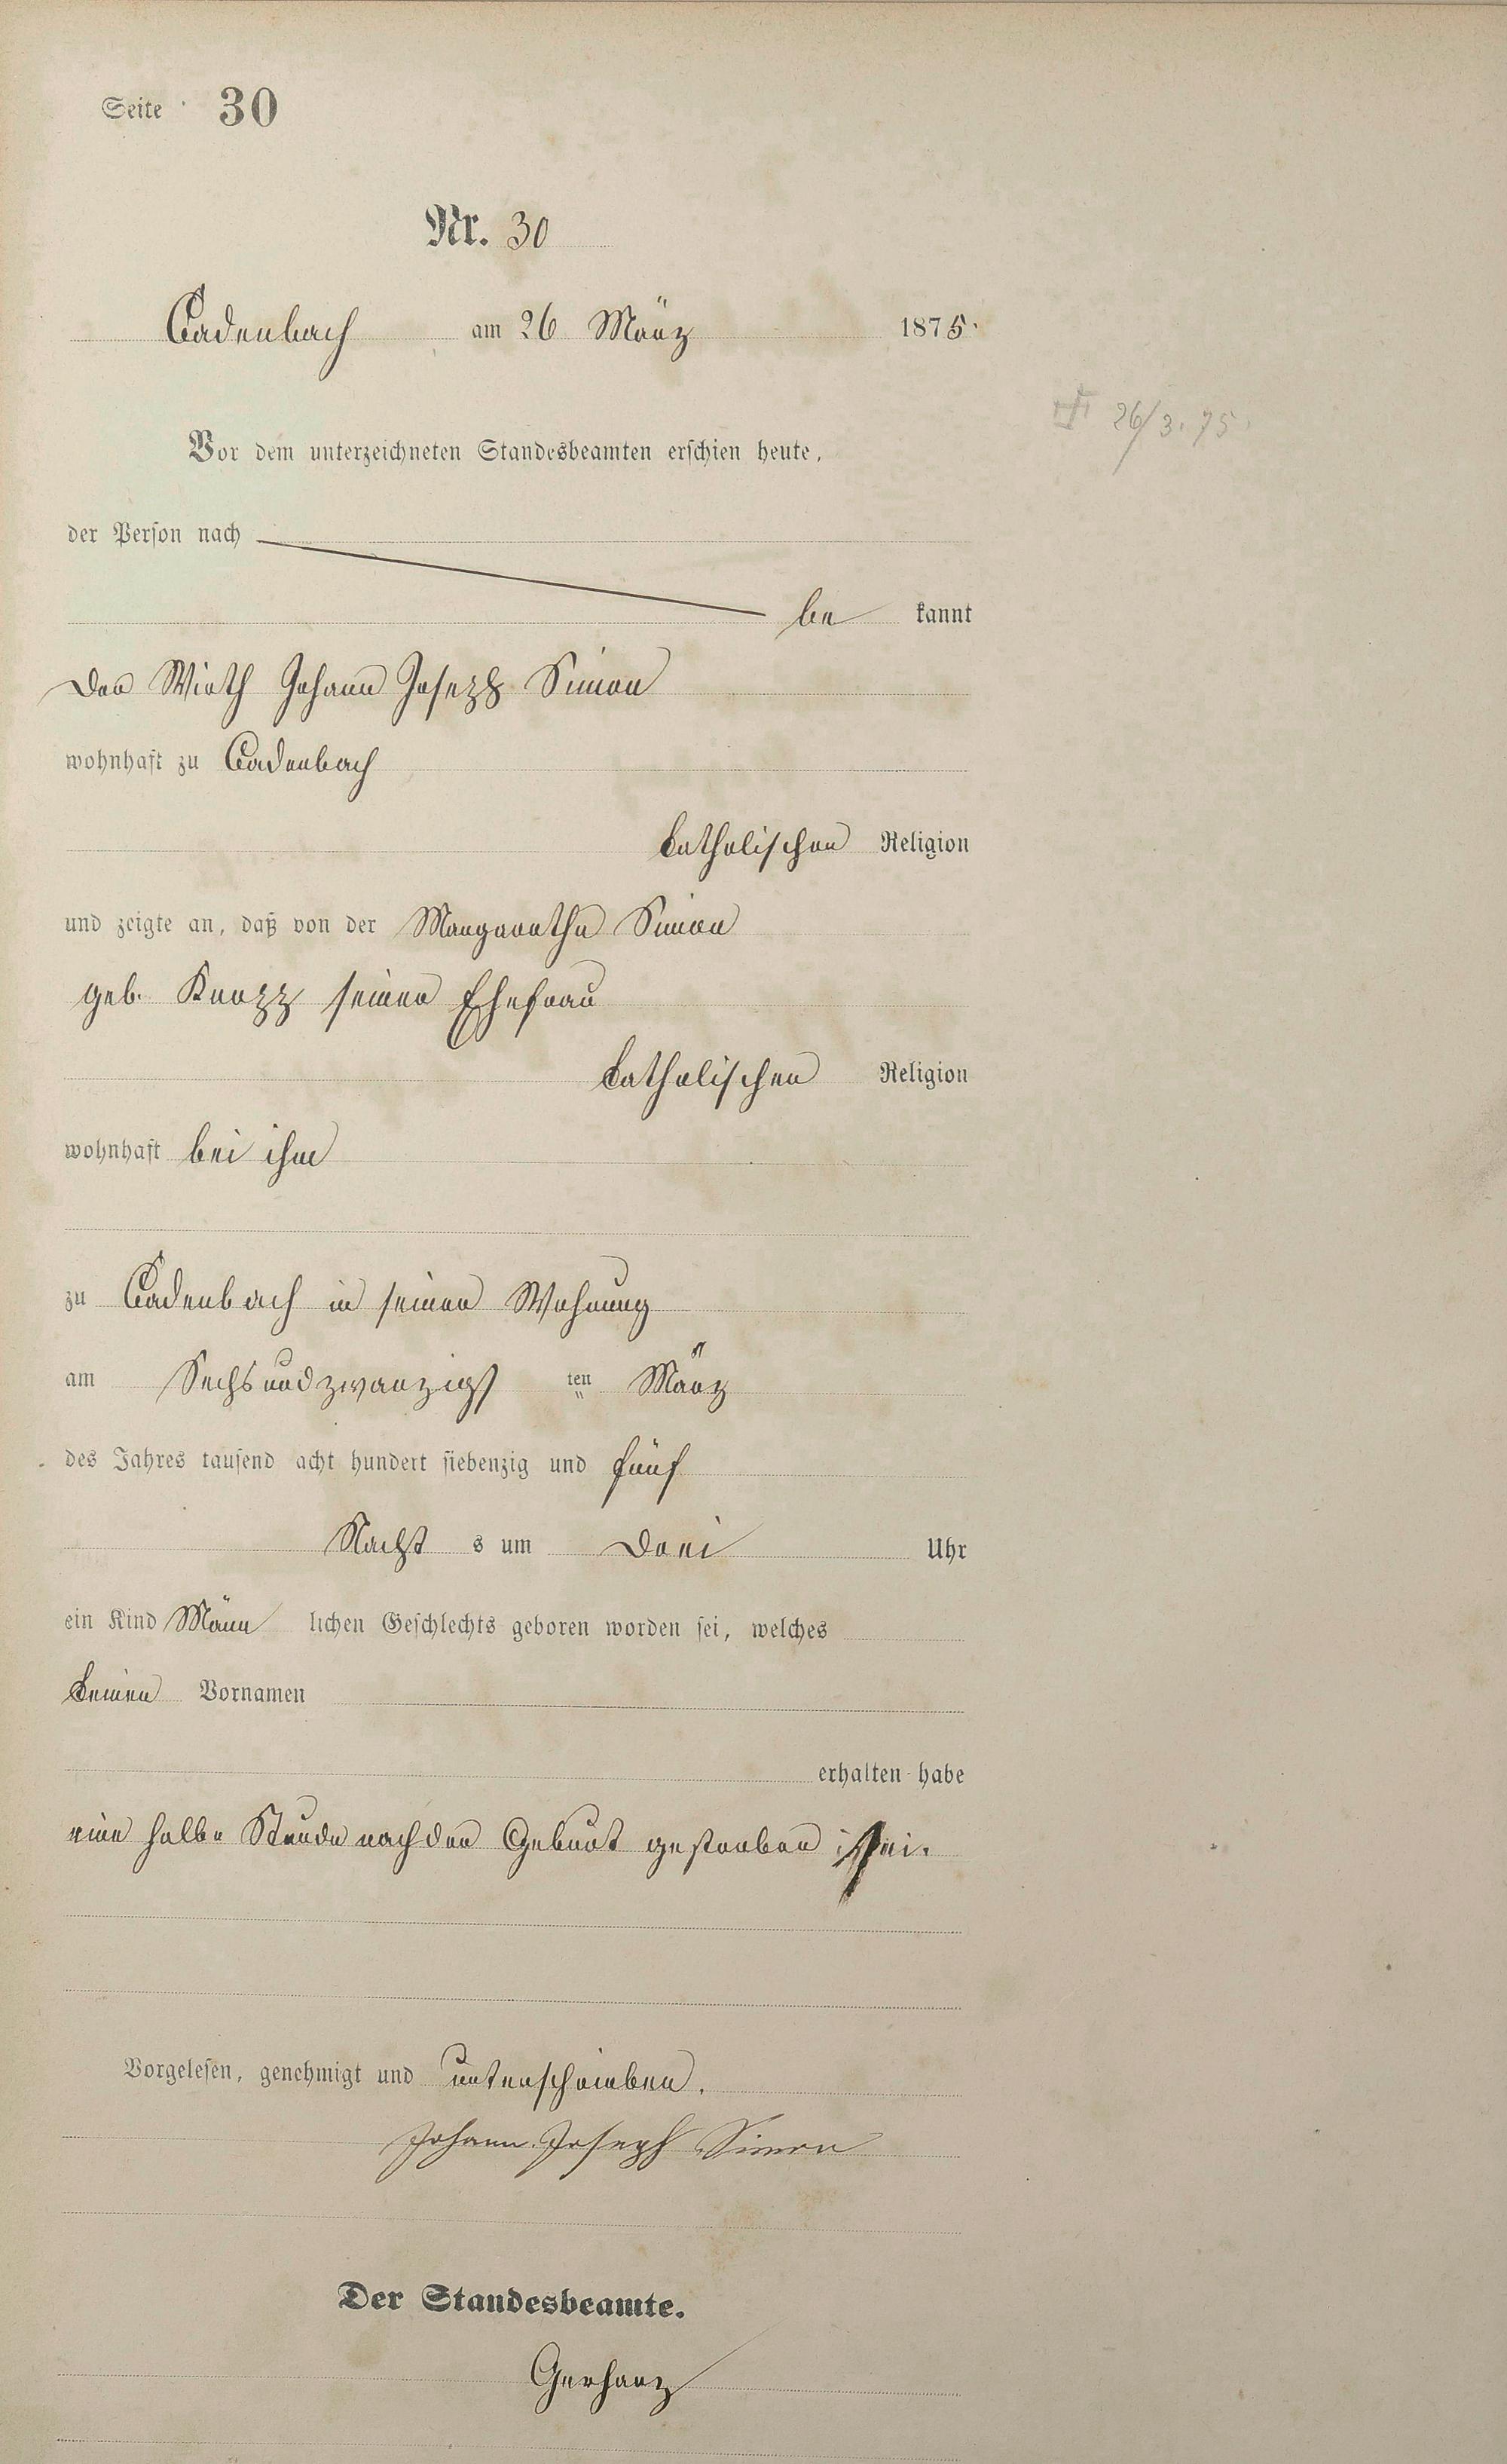 Seite 30
Nr. 30
Cadenbach am 26 März 1875.
† 26/3. 75.
Vor dem unterzeichneten Standesbeamten erschien heute,
der Person nach
be kannt
der Wirth Johann Joseph Simon
wohnhaft zu Cadenbach
katholischer Religion
und zeigte an, daß von der Margaretha Simon
geb. Knopp seiner Ehefrau
katholischer Religion
wohnhaft bei ihm
zu Cadenbach in seiner Wohnung
am Sechsundzwanzigst ten März
des Jahres tausend acht hundert siebenzig und fünf
Nacht s um Drei Uhr
ein Kind Männ lichen Geschlechts geboren worden sei, welches
keinen Vornamen
erhalten habe
eine halbe Stunde nach der Geburt gestorben sei.
Vorgelesen, genehmigt und unterschrieben.
Johann Joseph Simon
Der Standesbeamte.
Gerharz